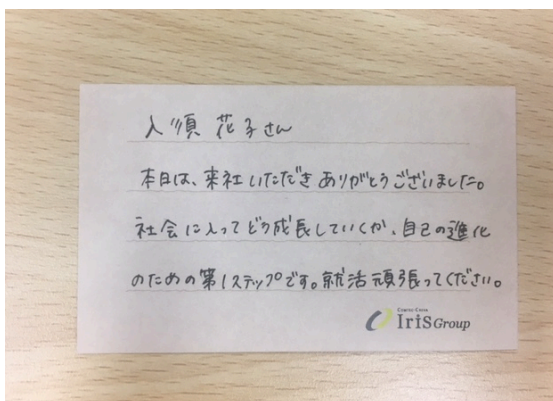 入須 花子さん
本日は、来社いただきありがとうございました。
社会に入ってどう成長していくか、自己の進化
のための第1ステップです。就活頑張ってください。
IriS Group